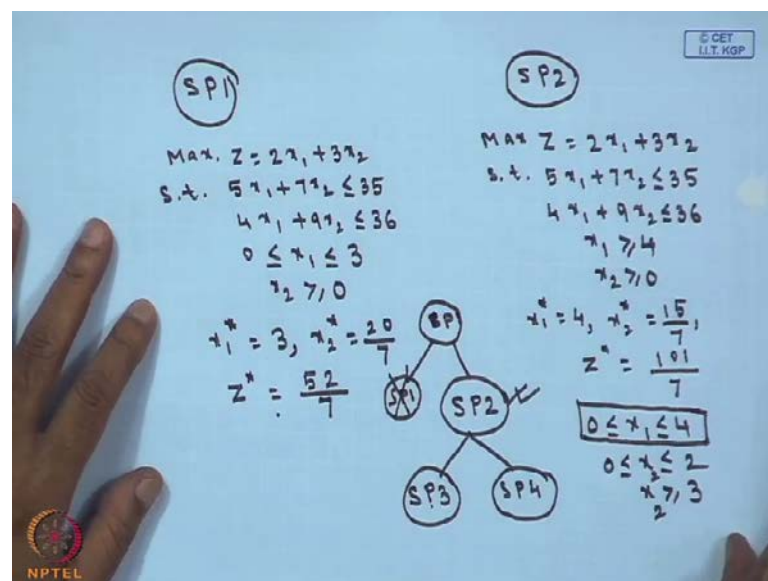 © CET
I.I.T. KGP
SP1
Max. Z = 2x₁ + 3x₂
s.t. 5x₁ + 7x₂ ≤ 35
4x₁ + 9x₂ ≤ 36
0 ≤ x₁ ≤ 3
x₂ ≥ 0
x₁* = 3, x₂* = 20/7
Z* = 52/7
SP2
Max Z = 2x₁ + 3x₂
s.t. 5x₁ + 7x₂ ≤ 35
4x₁ + 9x₂ ≤ 36
x₁ ≥ 4
x₂ ≥ 0
x₁* = 4, x₂* = 15/7,
Z* = 101/7
0 ≤ x₁ ≤ 4
0 ≤ x₂ ≤ 2
x₂ ≥ 3
SP
SP1
SP2
SP3
SP4
NPTEL